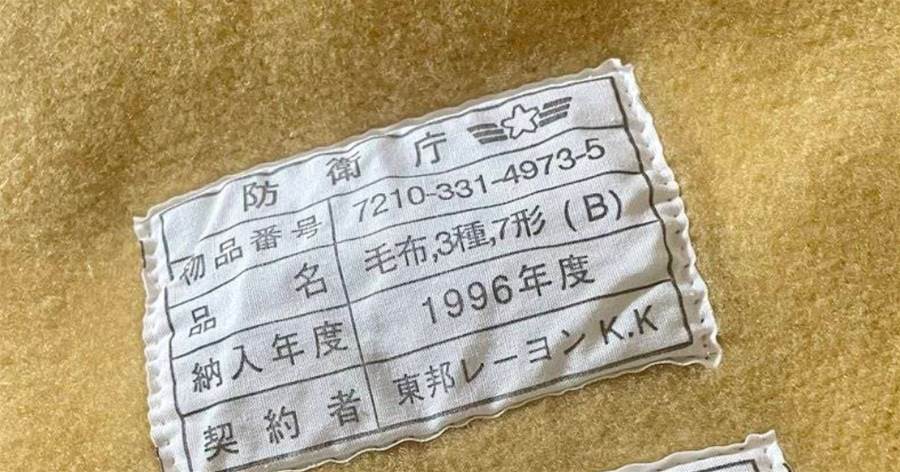 防衛庁
物品番号 7210-331-4973-5
品名 毛布,3種,7形(B)
納入年度 1996年度
契約者 東邦レーヨンK.K